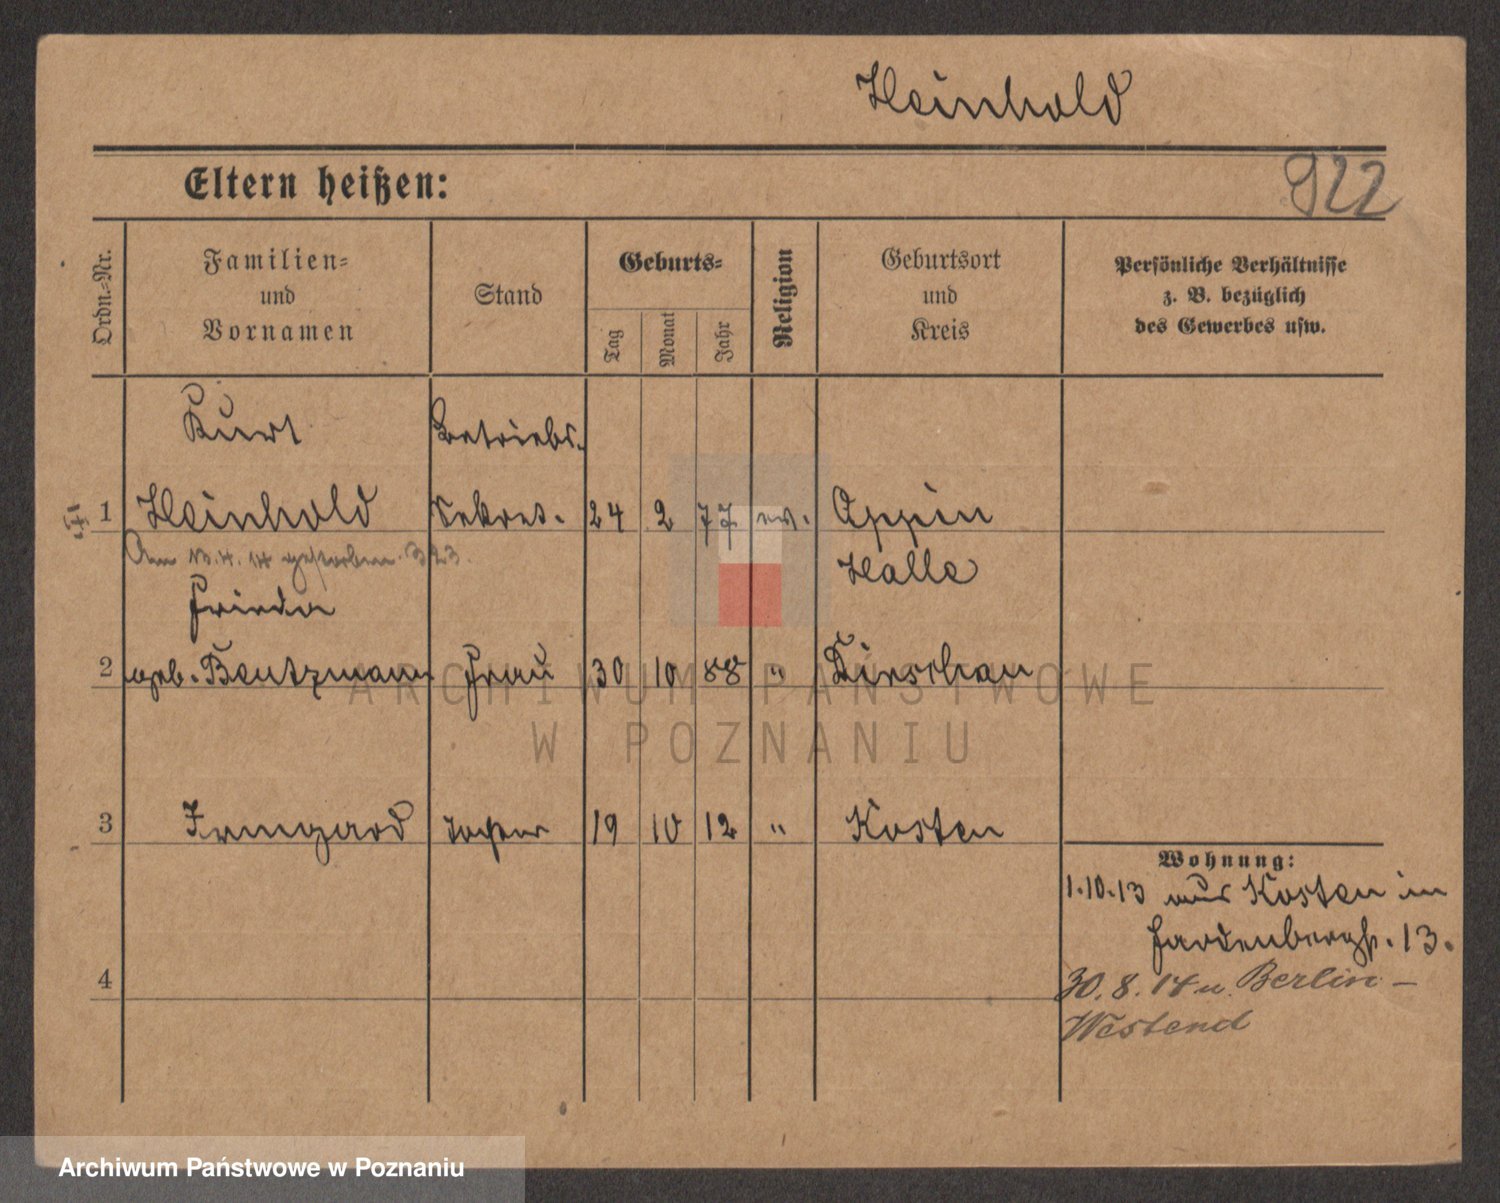 Heinhold
922
Eltern heißen:
Ordn.=Nr.
Familien=
und
Vornamen
Stand
Geburts=
Tag
Monat
Jahr
Religion
Geburtsort
und
Kreis
Persönliche Verhältnisse
z. B. bezüglich
des Gewerbes usw.
Kurt Betriebs-
1 Heinhold Sekret. 24 2 77 ev. Oppin
Am 13.4.14 gestorben. 323.
Halle
Frieda
2 geb. Bentzmann Frau 30 10 88 " Dirschau
3 Irmgard Tochter 19 10 12 " Kosten
4
Wohnung:
1.10.13 aus Kosten in
Hardenbergstr. 13.
30.8.14 n. Berlin-
Westend
ARCHIWUM PAŃSTWOWE
W POZNANIU
Archiwum Państwowe w Poznaniu